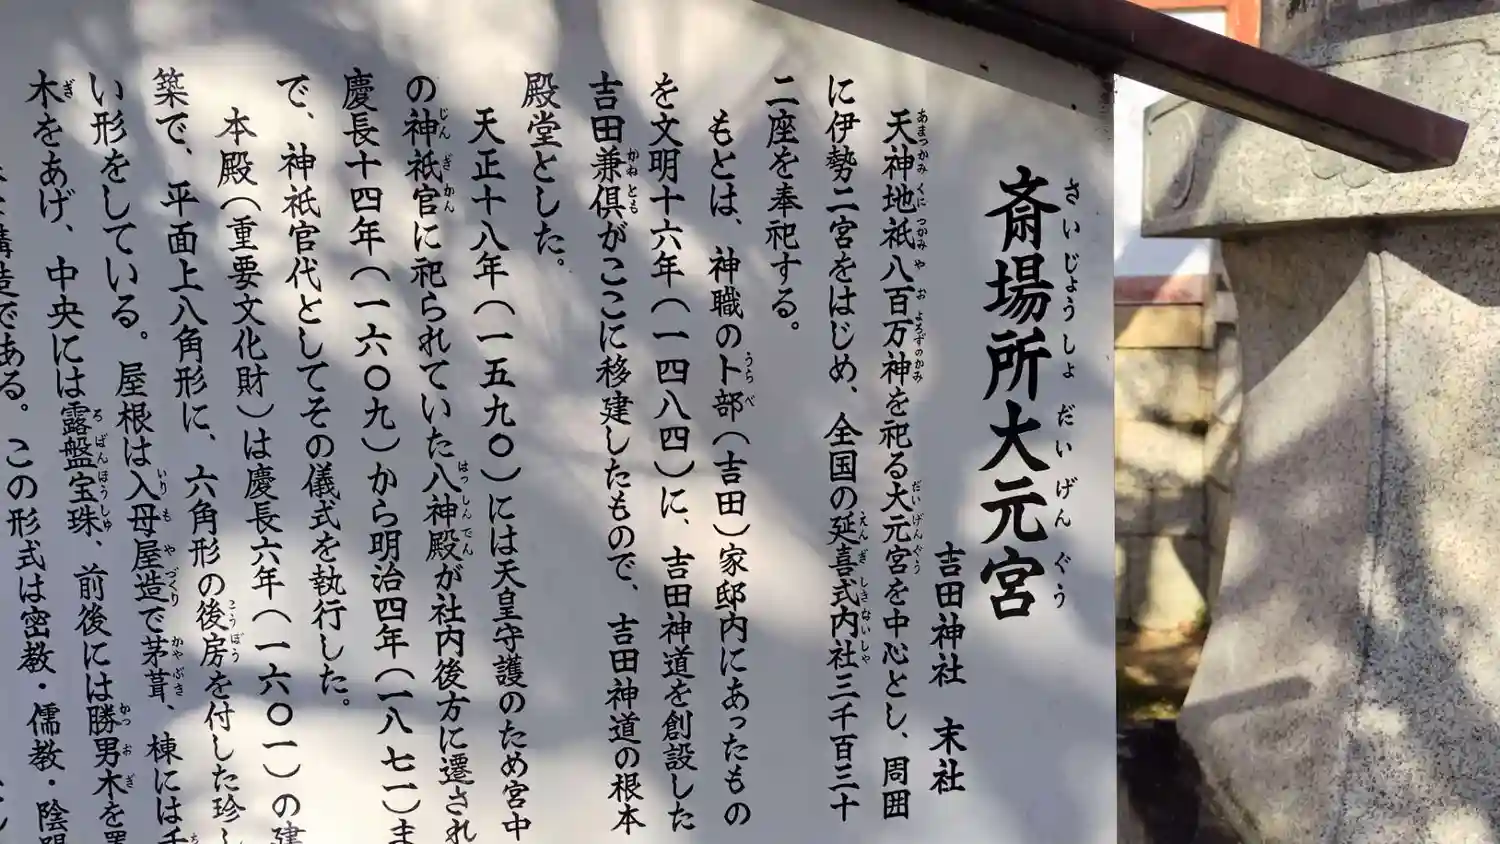 斎場所大元宮
吉田神社 末社
天神地祇八百万神を祀る大元宮を中心とし、周囲
に伊勢二宮をはじめ、全国の延喜式内社三千百三十
二座を奉祀する。
もとは、神職の卜部(吉田)家邸内にあったもの
を文明十六年(一四八四)に、吉田神道を創設した
吉田兼倶がここに移建したもので、吉田神道の根本
殿堂とした。
天正十八年(一五九〇)には天皇守護のため宮中
の神祇官に祀られていた八神殿が社内後方に遷され
慶長十四年(一六〇九)から明治四年(一八七一)ま
で、神祇官代としてその儀式を執行した。
本殿(重要文化財)は慶長六年(一六〇一)の建
築で、平面上八角形に、六角形の後房を付した珍し
い形をしている。屋根は入母屋造で茅葺、棟には千
木をあげ、中央には露盤宝珠、前後には勝男木を置
構造である。この形式は密教・儒教・陰陽